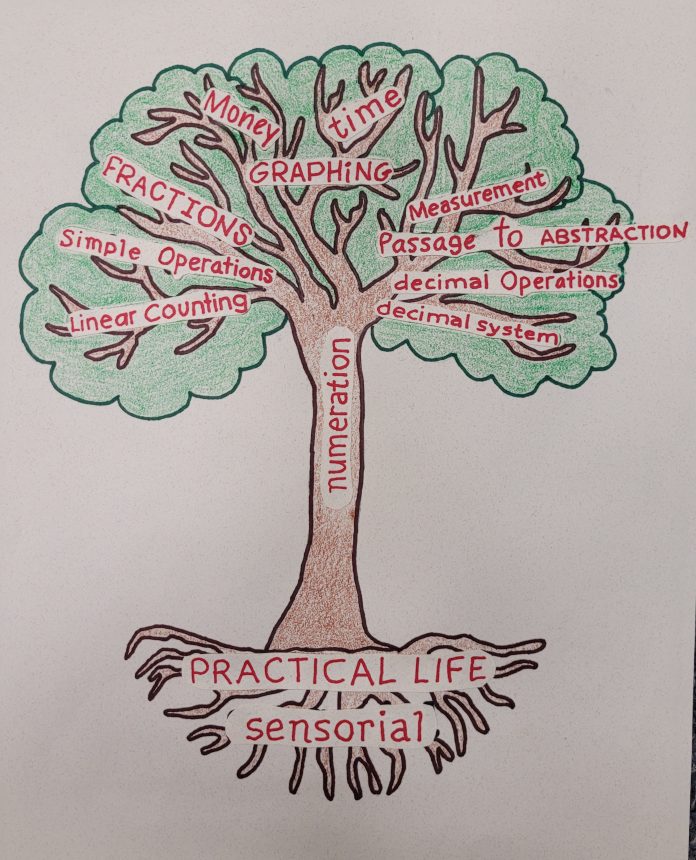 Money
time
GRAPHiNG
FRACTIONS
Measurement
Simple Operations
Passage to ABSTRACTION
Linear Counting
decimal Operations
decimal system
numeration
PRACTICAL LIFE
sensorial